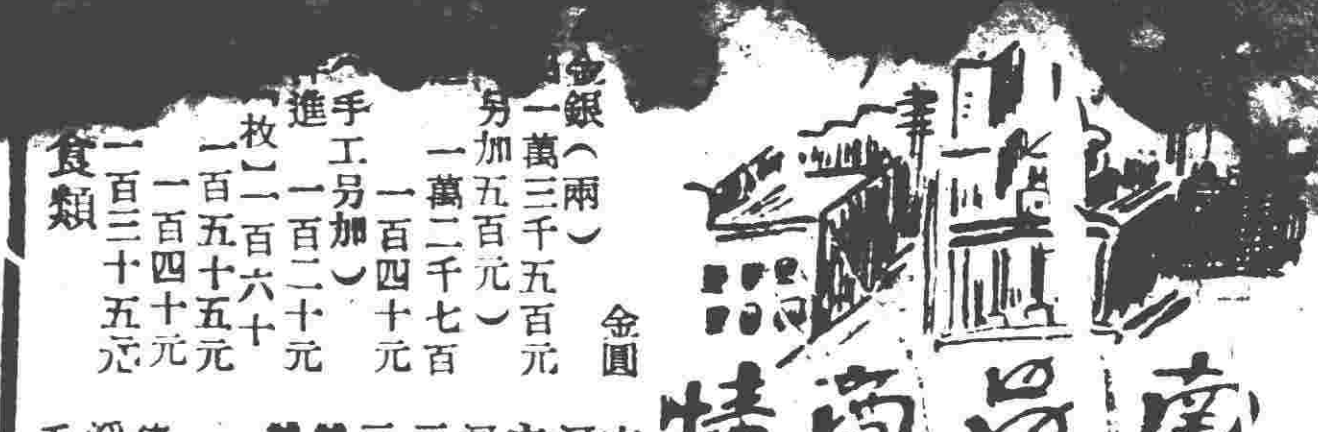 金圓
金銀（兩）
一萬三千五百元
另加五百元）
一萬二千七百
一百四十元
手工另加）
進 一百二十元
枚】一百六十
一百五十五元
一百四十元
一百三十五元
食類
南昌商情